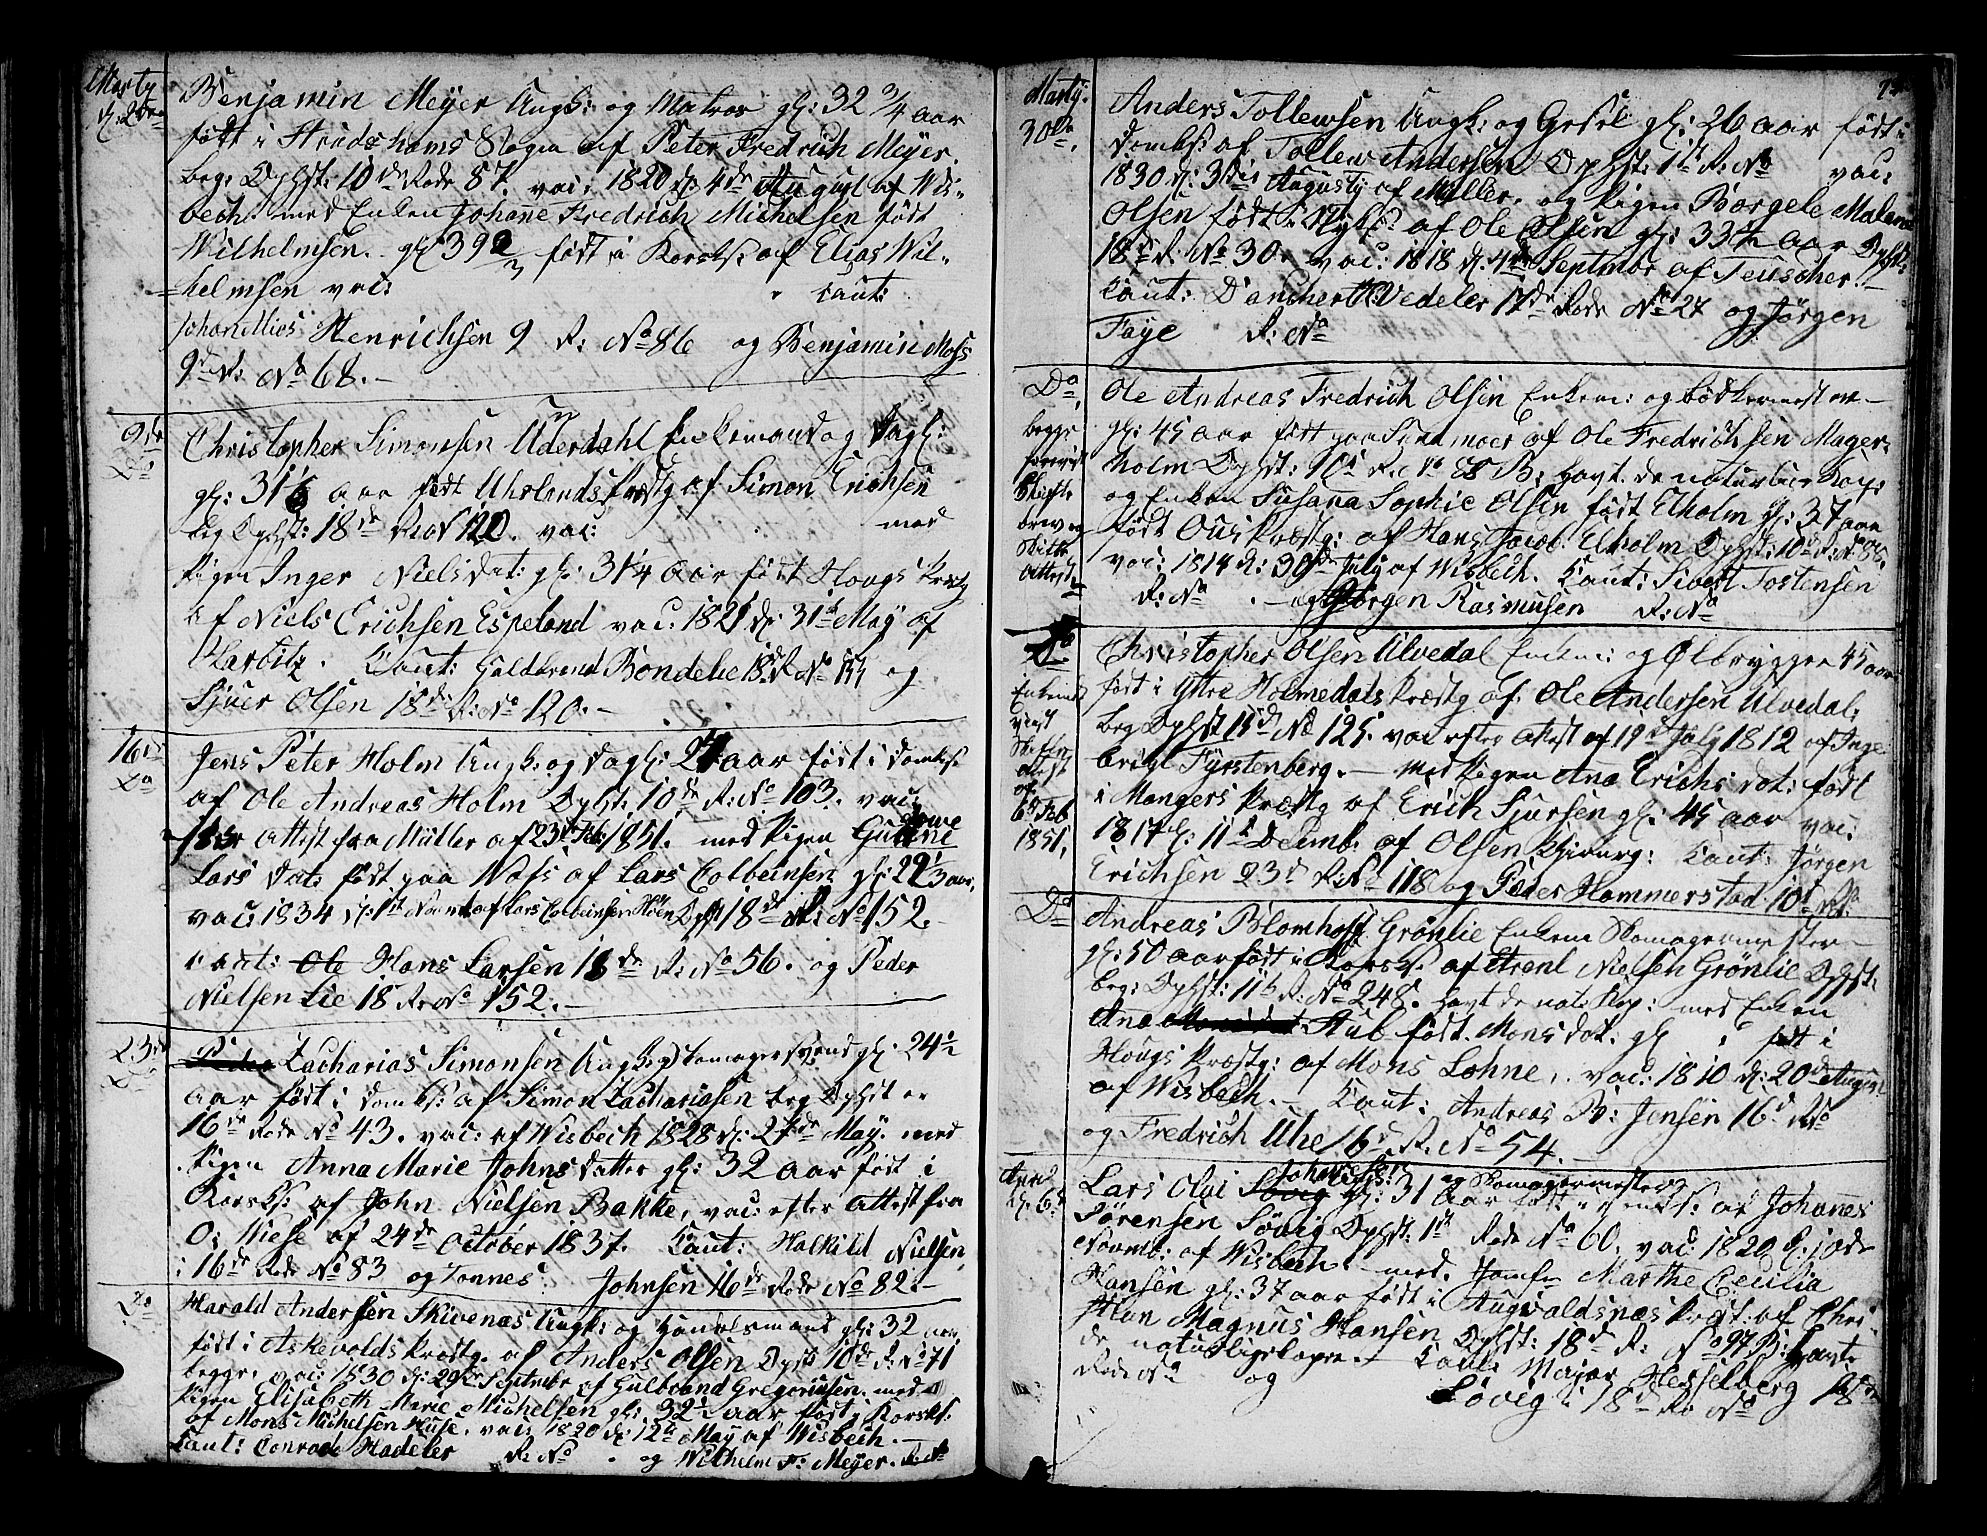 Marty
d: 2den
Benjamin Meyer Ungk: og Matros gl: 32 3/4 aar
født i Strudshavns Sogn af Peter Fredrich Meyer.
beg: Ophst: 10de Rode 87. vac: 1820 d: 4de August af Wis-
bech. med Enken Johane Fredrich Michelsen født
Wilhelmsen. gl 39 født i Korsk: af Elias Wil-
helmsen vac: Caut:
Johan Henrichsen 9 R: No 86 og Benjamin Moss
9de R: No 68.
9de
Do
Christopher Simonsen Uderdahl Enkemand og Dagl:
gl: 31 aar født Uhrlands Præstg af Simon Erichsen
beg Ophst: 18de Rode 120. vac: med
Pigen Inger Nielsdat: gl: 31 1/4 aar født Hougs Præstg
af Niels Erichsen Espeland vac: 1821 d: 31te May af
Harbitz. Caut: Bondelie 18de R No og
Sjuer Olsen 18de R: No 120.
16de
Do
Jens Peter Holm Ungk: og Dagl: 27 aar født i Domks:
af Ole Andreas Holm Ophst: 10de R: No 103. vac:
Attest fra Müller af 23de Feb: 1851. med Pigen
Lars Dat: født paa Woss af Lars Colbeinsen gl: 22 1/3 aar,
vac: 1834 d: 1st Novmb af Lars Colbeinsen Ophst 18de R: No 152.
Caut: Ole Hans Larsen 18de R: No 56. og Peder
Nielsen Lie 18 R: No 152.
23de
Do
Peder Zacharias Simonsen Ungk: Skomagersvend gl: 24 1/2
aar født i Domks: af Simon Zachariasen beg Ophst er
16de Rode No 43. vac: af Wisbech 1828 d: 27de May. med
Pigen Anna Marie Johns datter gl: 32 aar født i
Korsk: af John Nielsen Bakke, vac: efter Attest fra
O: Wiese af 24de October 1837. Caut: Halkild Nielsen
i 16de Rode No 83 og Tonnes Johnsen 16de Rode No 82.
Do
Harald Andersen Skivenæs Ungk: og Handelsmand gl: 32 aar
født i Askevolds Præstg. af Anders Olsen Ophst 10de R: No 71
begge, vac: 1830 d: 29de Septmbr af Gulbrand Gregoriusen. med
Pigen Elisabeth Marie Michelsen gl: 32 1/2 aar født i Korsk:
af Mons Michelsen Huse, vac: 1820 d: 12te May af Wisbech.
Caut: Conrad Hadeler R: No og Wilhelm F: Meyer. R: No
Marty:
30de,
Anders Tollewsen Ungk: og Gesel gl: 26 aar født i
Domks: af Tollew Andersen Ophst: 1st R: No vac:
1830 d: 3die Augusty af Müller. og Pigen Børgele Malene
Olsen født i Nyks: af Ole Olsen gl: 33 1/2 aar Ophst:
18de R. No 30. vac: 1818 d. 4de Septmbr af Teilscher.
Caut: Danchert Vedeler 17de Rode No 27 og Jørgen
Faye R: No
Do,
begge
forevist
Skifte
brev og
Skifte
Attest
Ole Andreas Fredrich Olsen Enkem: og Bødkermester
gl: 45 aar født paa Sundmoer af Ole Fredrichsen Mager-
holm Ophst: 10de R. No 88 B: havt de naturlige Kop:
og Enken Susana Sophie Olsen født Elholm gl: 37 aar
født Ous Præstg: af Hans Jacob Elholm Ophst: 10de R: No 88.
vac: 1814 d: 30de July af Wisbech. Caut: Sivert Tostensen
R: No og Jørgen Rasmusen R: No
Do.
Enkem
viist
Skifte
attest
af
6te Feb
1851,
Christopher Olsen Ulvedal Enkem: og Ølbrygger 45 aar
født i Yttre Holmedals Præstg af Ole Andersen Ulvedal;
beg Ophst 15de No 125. vac efter Attest af 19de July 1812 af Inge
brigt Fyrstenberg. med Pigen Ana Erichs dat: født
i Mangers Præstg af Erich Sjursen gl: 45 aar vac:
1817 d: 11te Decmb: af Olsen Chirurg: Caut: Jørgen
Erichsen 23de R: No 118 og Peder Hammerstad 10de R: No
Do
Andreas Blomhoff Grønlie Enkem Skomagermester
gl: 50 aar født i Korsk: af Arent Nielsen Grønlie Ophst:
beg: Ophst: 11te R: No 248. havt de nat: Kop: med Enken
Ana Stub født Mons dat. gl født i
Hougs Præstg: af Mons Lohne, vac: 1810 d: 20de August
af Wisbech. Caut: Andreas B: Jensen 16de R: No
og Fredrich Uhe 16de R: No 54.
April
d: 6te
Lars Olai Søvig Johannes: gl: 31 aar og Skomagermester født i Nyks: af Johanes
Sørensen Søvig Ophst: 1st Rode No 60. vac 1820 d: 10de
Novmb: af Wisbech. med Jomfr Marthe Cecilia
Hansen gl: 37 aar født i Augvaldsnæs Præst: af Chri-
stian Magnus Hansen Ophst: 18de R: No 97 B: havt
de naturlige Kopr. Caut: Major Hesselberg 18de
Rode No og Søvig i 18de R: No